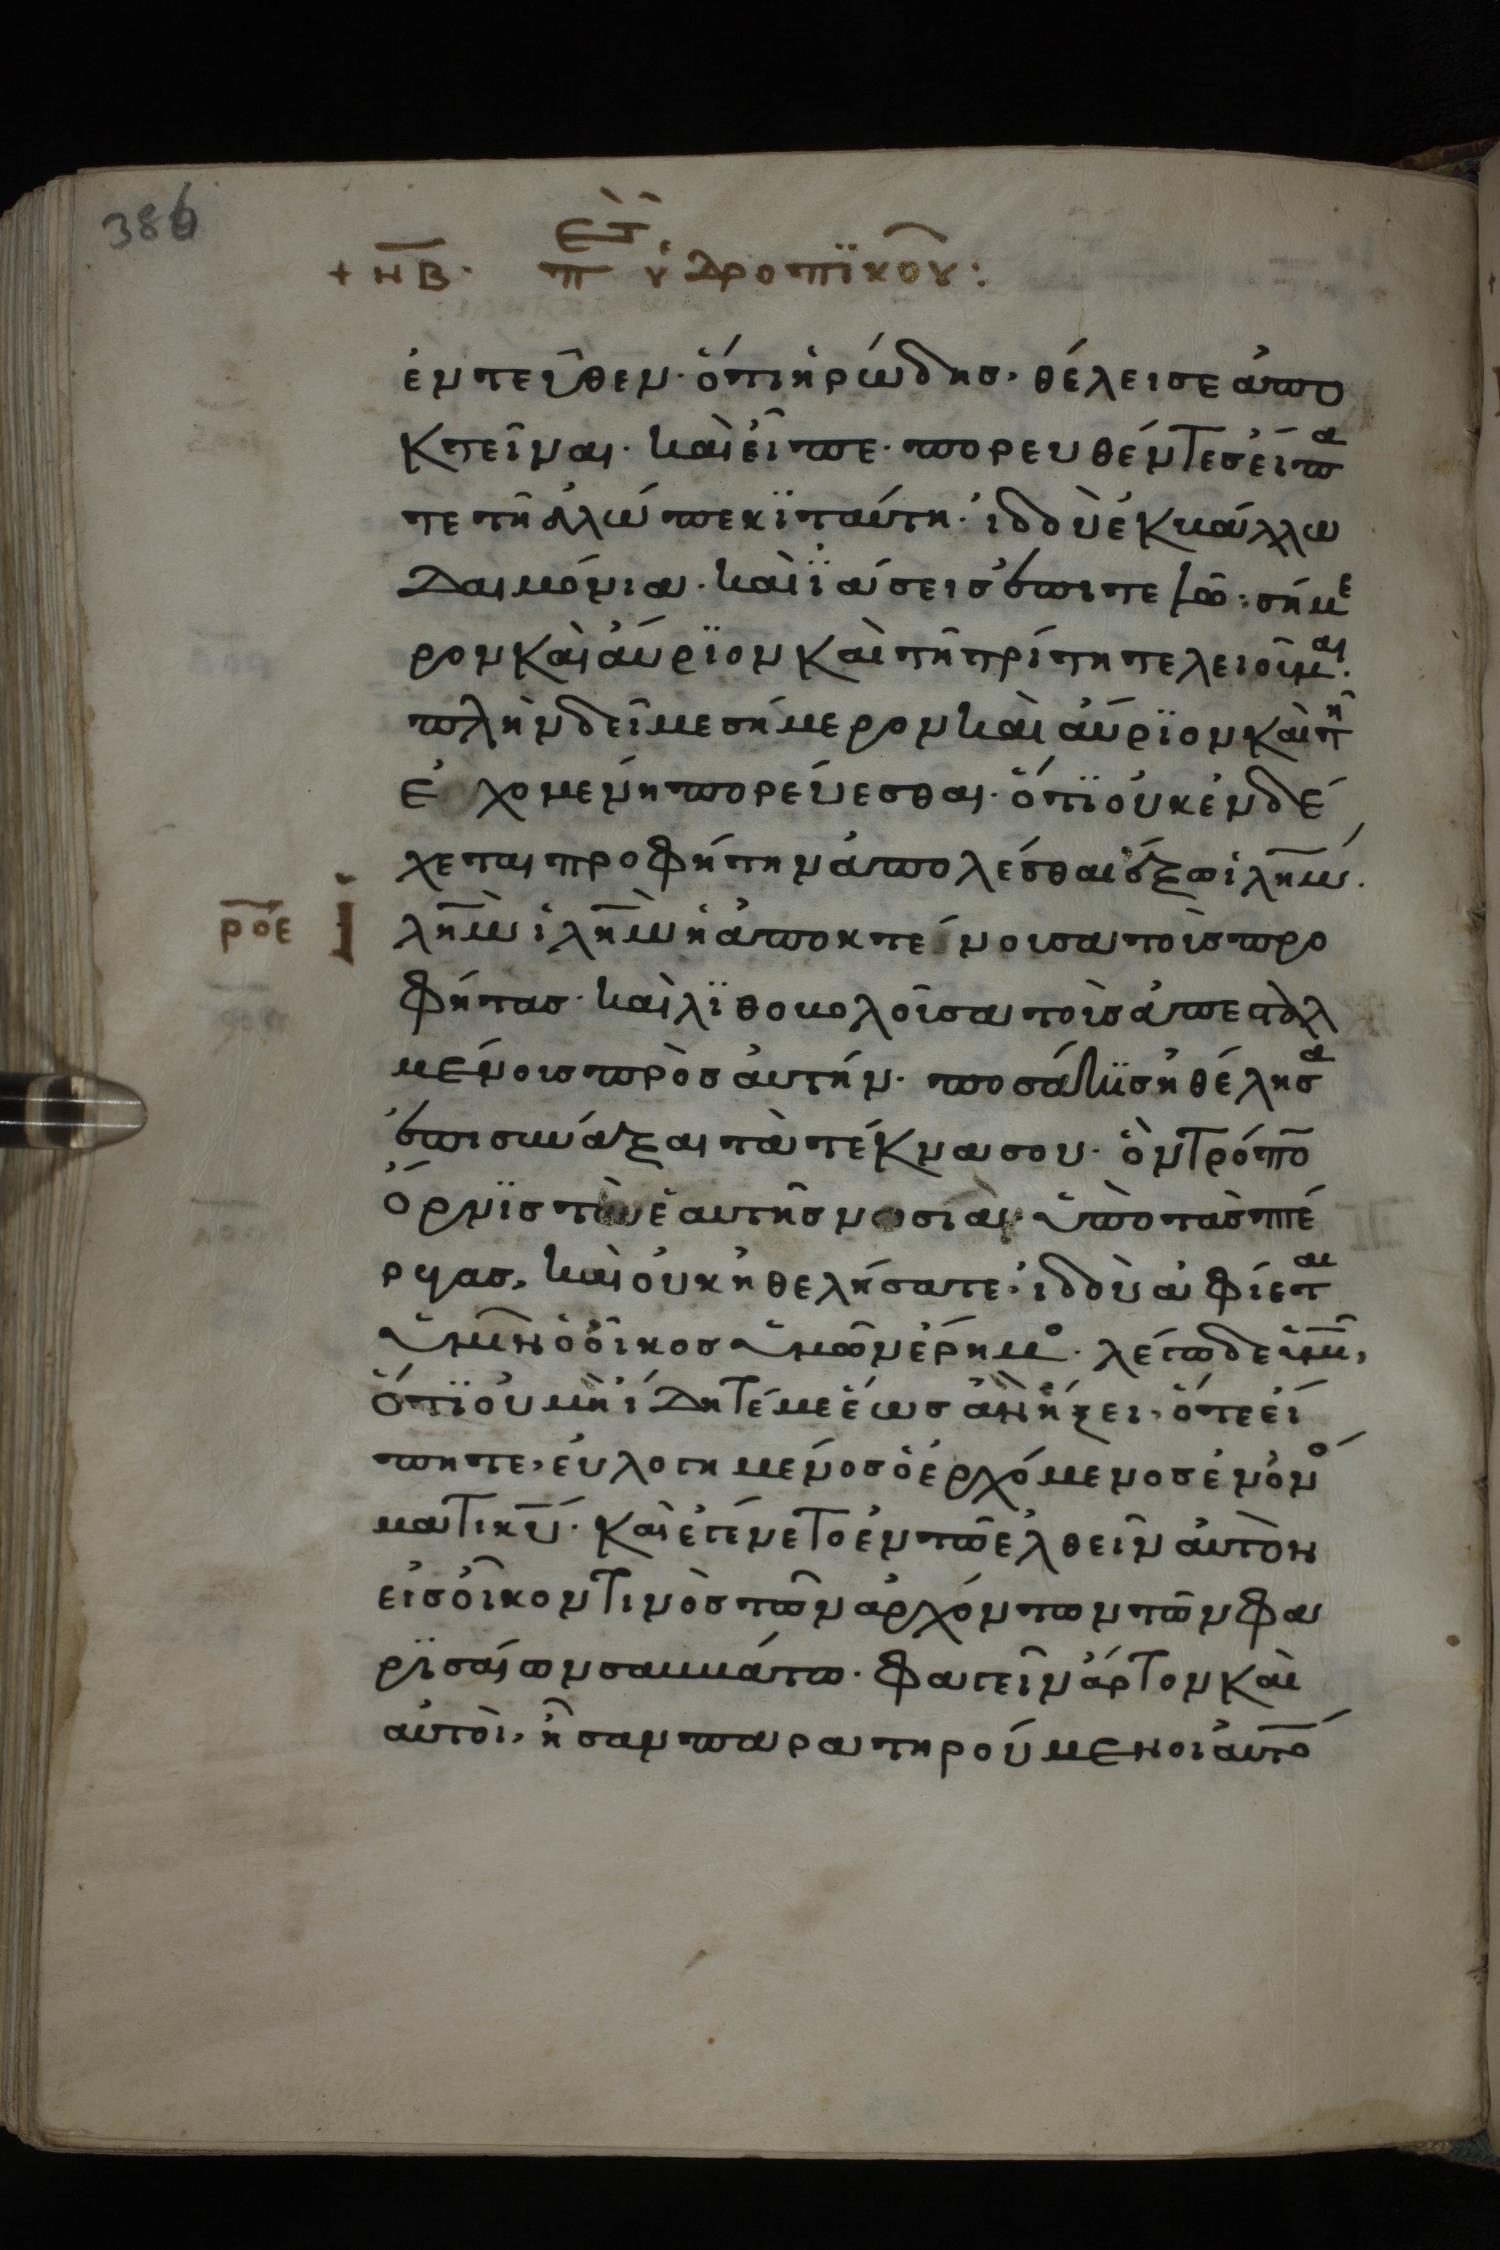 386
+ νβ· περὶ τοῦ ὑδροπϊκοῦ:
ἐντεῦθεν· ὅτι ἡρώδης, θέλει σε ἀπο
κτεῖναι· καὶ εἶπε· πορευθέντες εἴπα
τε τῆ ἀλώπεκϊ ταύτη· ἰδοὺ ἐκβάλλω
δαιμόνια· καὶ ϊάσεις ἐπιτελῶ· σήμε
ρον καὶ αὔρϊον καὶ τῆ τρίτη τελειοῦμαι·
πλὴν δεῖ με σήμερον καὶ αὔρϊον καὶ τῆ
ἐχομένη πορεύεσθαι· ὅτϊ οὐκ ἐνδέ
χεται προφήτην ἀπολέσθαι ἔξω ἱλημ·
ροε ἱ
λημ ἱλημ ἡ ἀποκτένουσα τοὺς προ
φήτας· καὶ λϊθοβολοῦσα τοὺς ἀπεσταλ
μένους πρὸς αὐτήν· ποσάκϊς ἠθέλησα
ἐπισυνάξαι τὰ τέκνα σου· ὃν τρόπο
ὄρνϊς τὴν ἑαυτῆς νοσιὰν ὑπὸ τὰς πτέ
ρυγας, καὶ οὐκ ἠθελήσατε· ἰδοὺ ἀφίεται
ὑμῖν ὁ οἶκος ὑμῶν ἔρημο· λέγω δὲ ὑμῖ,
ὅτϊ οὐ μὴ ἴδητέ με ἕως ἂν ἥξει, ὅτε εἴ
πητε, εὐλογημένος ὁ ἐρχόμενος ἐν ὀνό
ματι κυ· καὶ ἐγένετο ἐν τῶ ἐλθεῖν αὐτὸν
εἰς οἶκον τινὸς τῶν ἀρχόντων τῶν φα
ρϊσαίων σαββάτω· φαγεῖν ἄρτον καὶ
αὐτοὶ, ἦσαν παρατηρούμενοι αὐτό